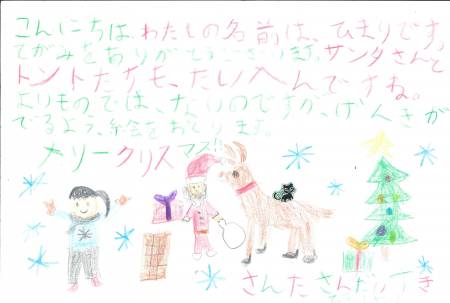 こんにちは、わたしの名前は、ひまりです。
てがみをありがとうございます。サンタさんと
トントたちも、たいへんですね。
よりものでは、ないのですが、げんきが
でるよう、絵をおくります。
メリークリスマス!!
さんたさんだいすき